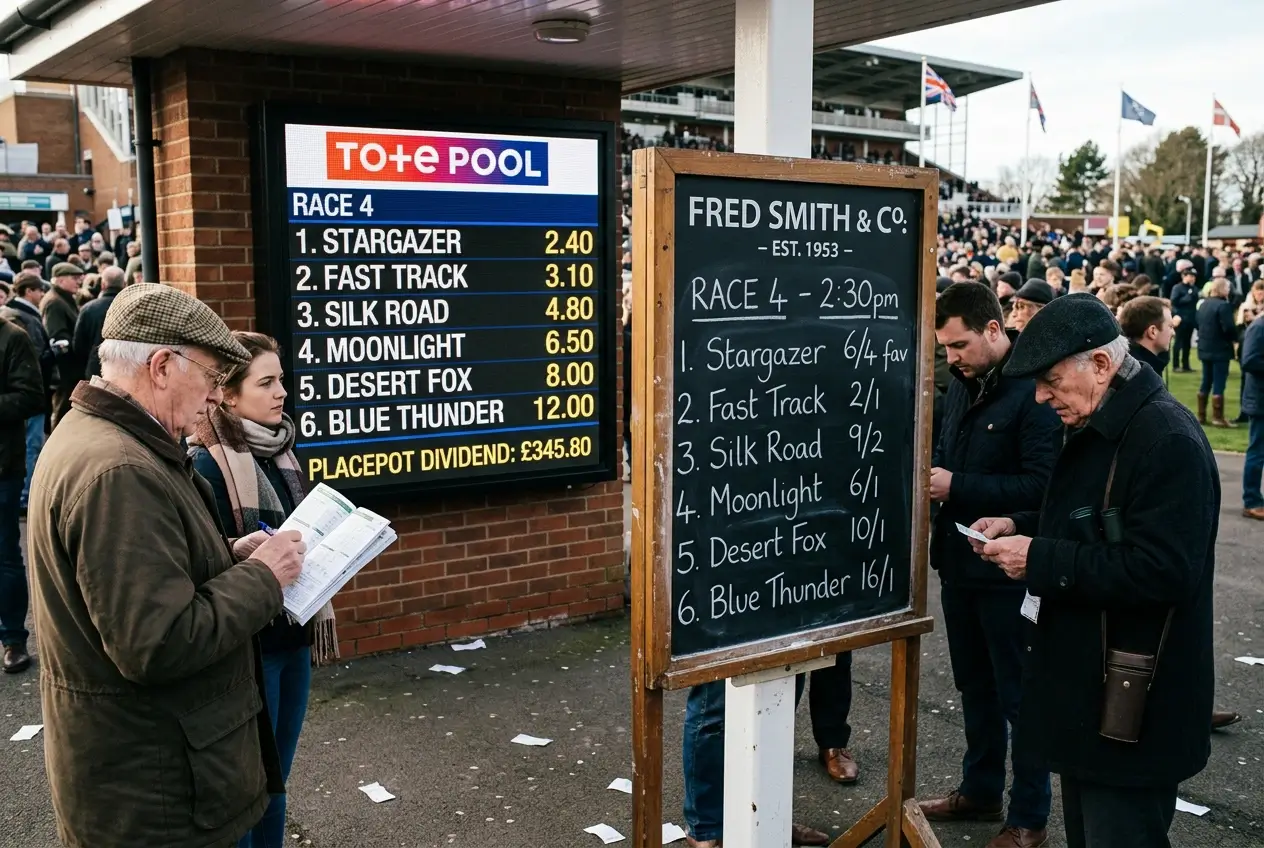 TOTE POOL
RACE 4
1. STARGAZER 2.40
2. FAST TRACK 3.10
3. SILK ROAD 4.80
4. MOONLIGHT 6.50
5. DESERT FOX 8.00
6. BLUE THUNDER 12.00
PLACEPOT DIVIDEND: £345.80
FRED SMITH & CO.
- EST. 1953 -
RACE 4 - 2:30pm
1. Stargazer 6/4 fav
2. Fast Track 2/1
3. Silk Road 9/2
4. Moonlight 6/1
5. Desert Fox 10/1
6. Blue Thunder 16/1